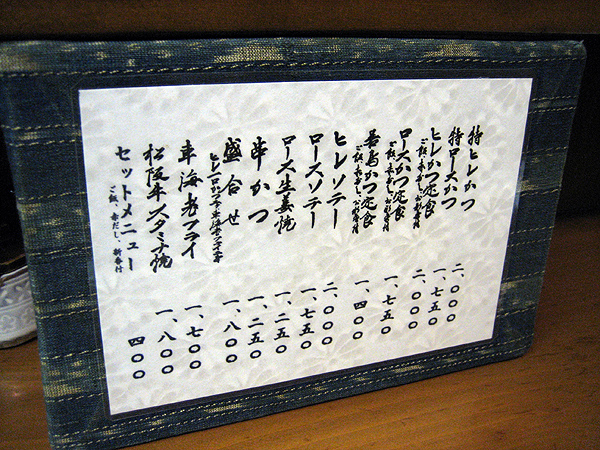 特ヒレかつ 二、〇〇〇
特ロースかつ 一、七五〇
ヒレかつ定食 二、〇〇〇
ご飯、赤だし、お新香付
ロースかつ定食 一、七五〇
ご飯、赤だし、お新香付
若鳥かつ定食 一、四〇〇
ご飯、赤だし、お新香付
ヒレソテー 二、〇〇〇
ロースソテー 一、七五〇
ロース生姜焼 一、二五〇
串かつ 一、二五〇
盛合せ 一、八〇〇
車海老フライ 一、七〇〇
松阪牛スタミナ焼 一、八〇〇
セットメニュー 四〇〇
ご飯、赤だし、新香付